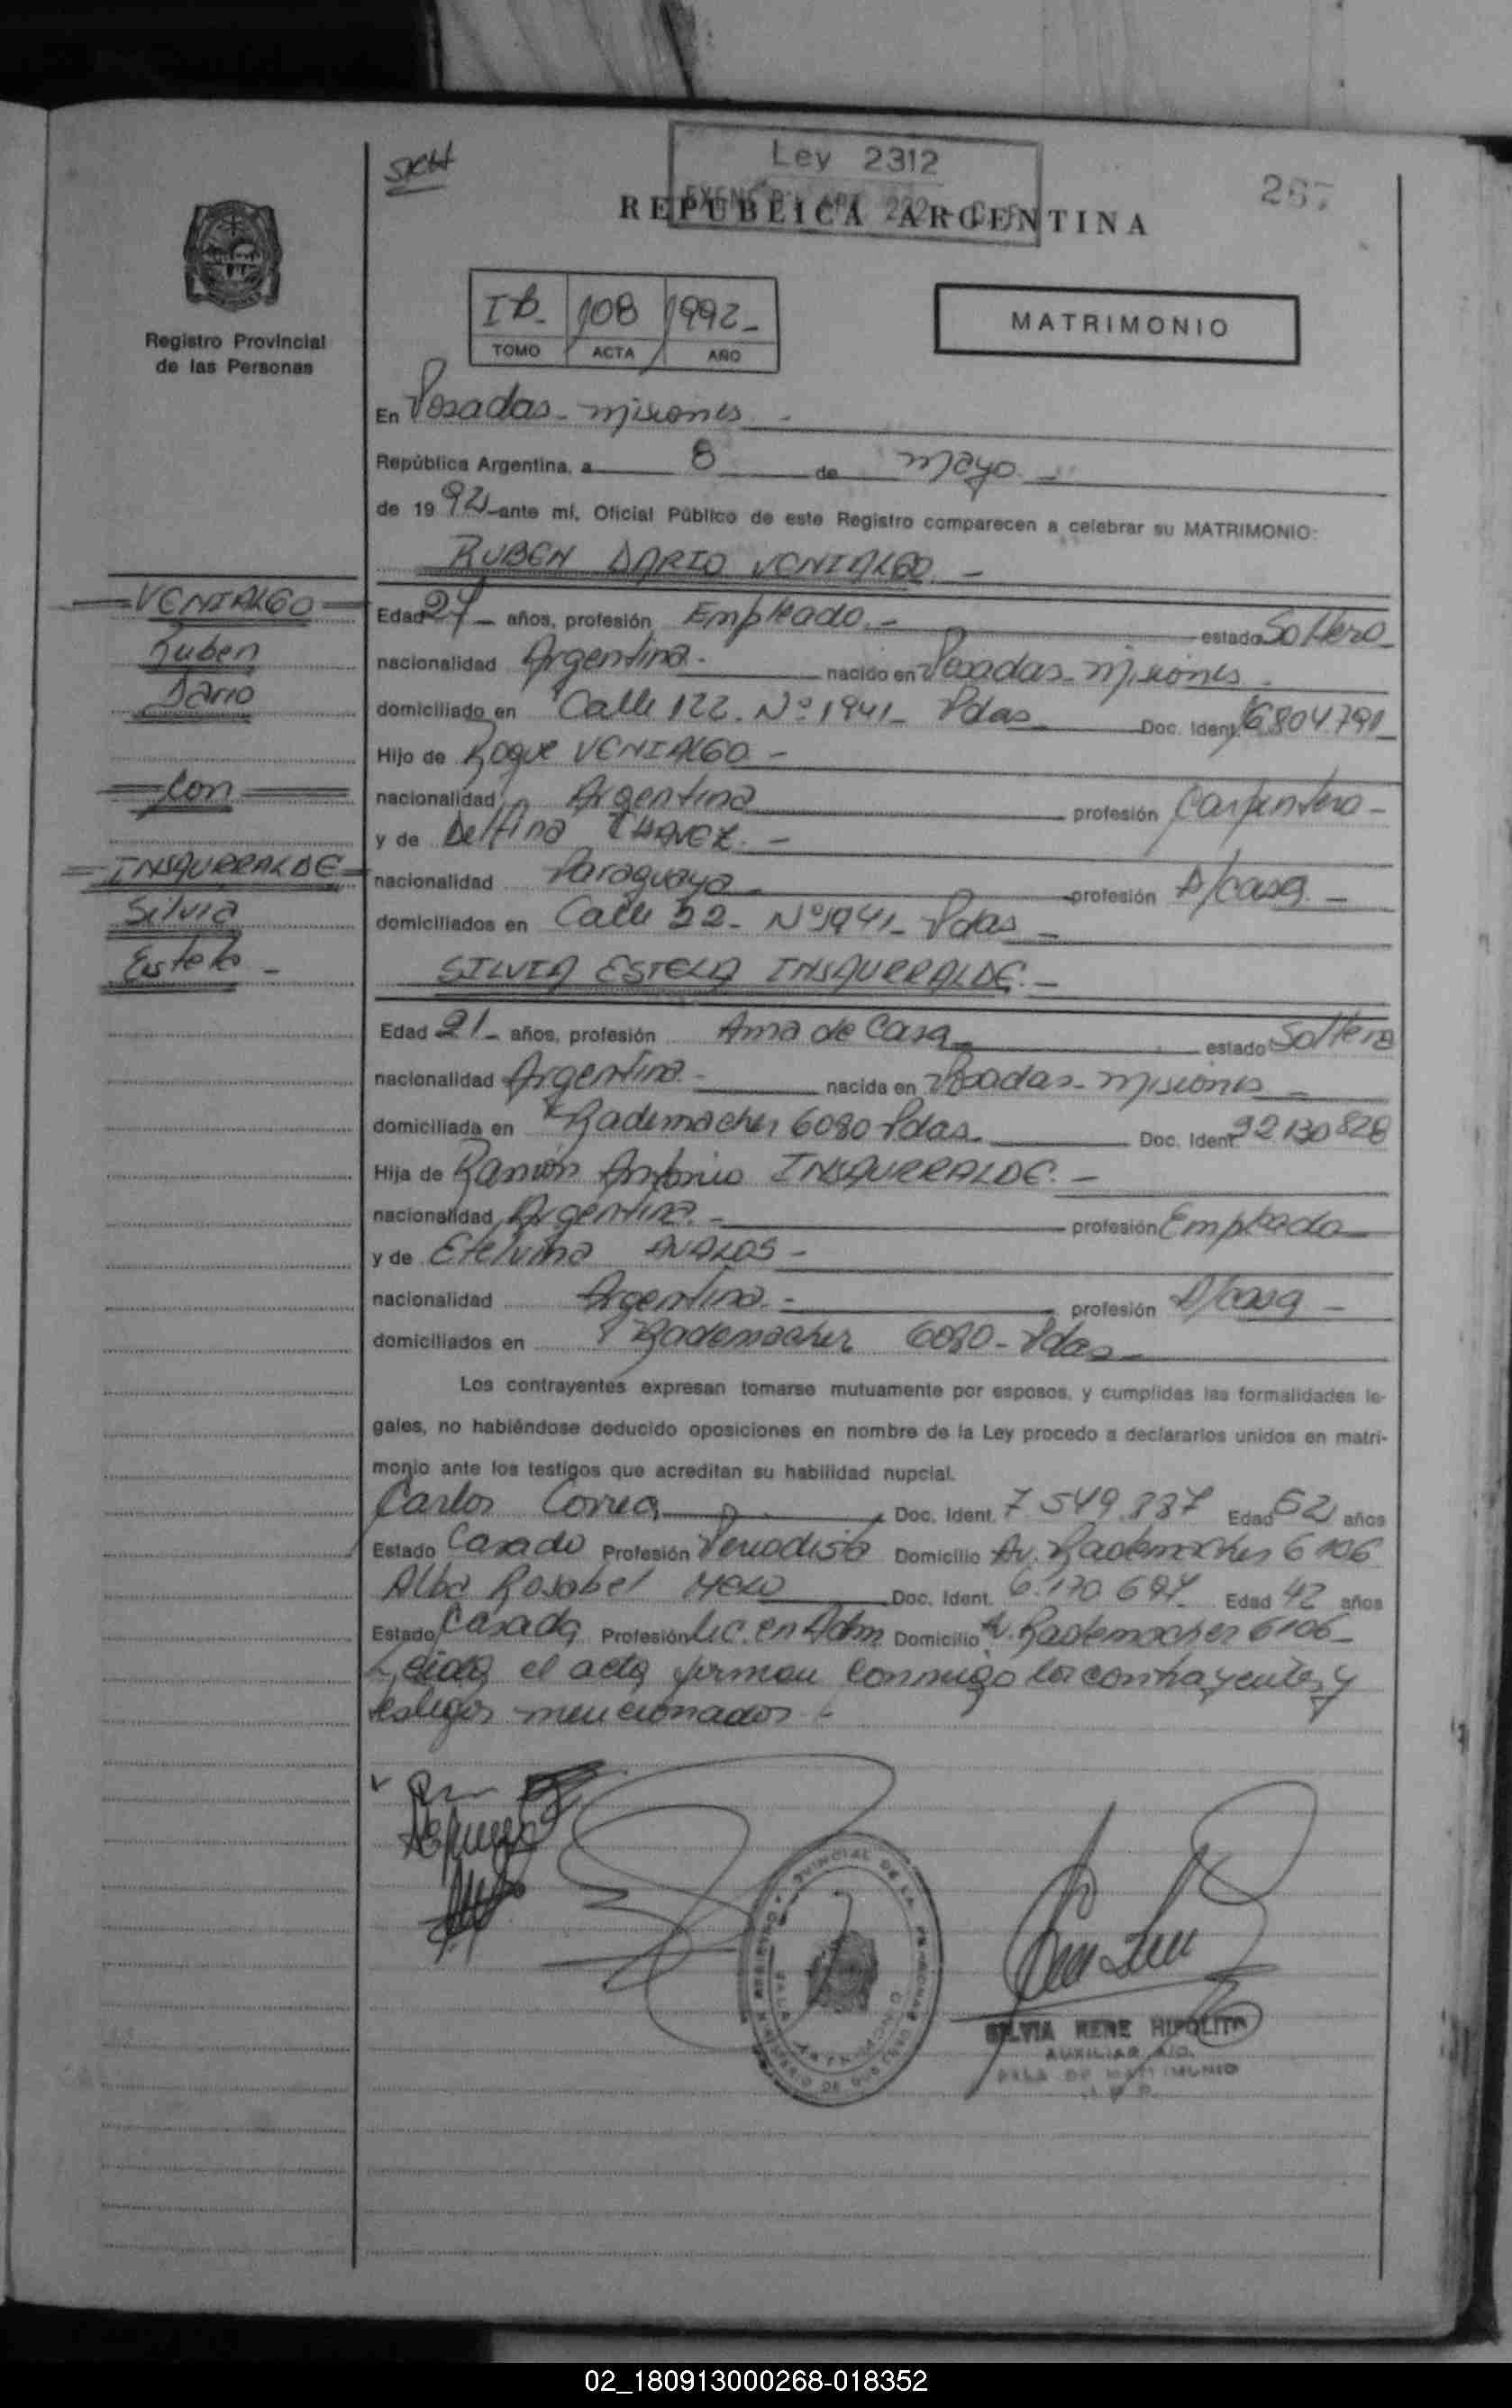 Ley 2312
267
REPUBLICA ARGENTINA
Registro Provincial
de las Personas
IB- 108 1992-
TOMO ACTA AÑO
MATRIMONIO
En Posadas - misiones -
República Argentina, a 8 de mayo -
de 1992-ante mí, Oficial Público de este Registro comparecen a celebrar su MATRIMONIO:
RUBEN DARIO VENIALGO -
VENIALGO
Ruben
Dario
con
INSAURRALDE
Silvia
Estela -
Edad 27 - años, profesión Empleado - estado Soltero
nacionalidad Argentina - nacido en Posadas - misiones -
domiciliado en Calle 122 - Nº 1941 - Pdas Doc. Ident. 16804791
Hijo de Roque VENIALGO -
nacionalidad Argentina profesión Carpintero -
y de Delfina CHAVEZ. -
nacionalidad Paraguaya - profesión A/casa. -
domiciliados en Calle 22 - Nº 1941 - Pdas -
SILVIA ESTELA INSAURRALDE. -
Edad 21 - años, profesión Ama de Casa estado Soltera
nacionalidad Argentina - nacida en Posadas - misiones -
domiciliada en Rademacher 6080 Pdas. Doc. Ident. 22.130828
Hija de Ramón Antonio INSAURRALDE. -
nacionalidad Argentina - profesión Empleado
y de Etelvina AVALOS -
nacionalidad Argentina - profesión A/casa -
domiciliados en Rademacher 6080 - Pdas -
Los contrayentes expresan tomarse mutuamente por esposos, y cumplidas las formalidades le-
gales, no habiéndose deducido oposiciones en nombre de la Ley procedo a declararlos unidos en matri-
monio ante los testigos que acreditan su habilidad nupcial.
Carlos Correa Doc. Ident. 7.549.837 Edad 52 años
Estado Casado Profesión Periodista Domicilio Av. Rademacher 6106
Alba Rosabel MELO Doc. Ident. 6.170.697 Edad 42 años
Estado Casada Profesión Lic. en Adm Domicilio Av. Rademacher 6106 -
Leida el acta firman conmigo los contrayentes y
testigos mencionados -
SILVIA RENE HIPOLITA
AUXILIAR
SALA DE MATRIMONIO
02_180913000268-018352